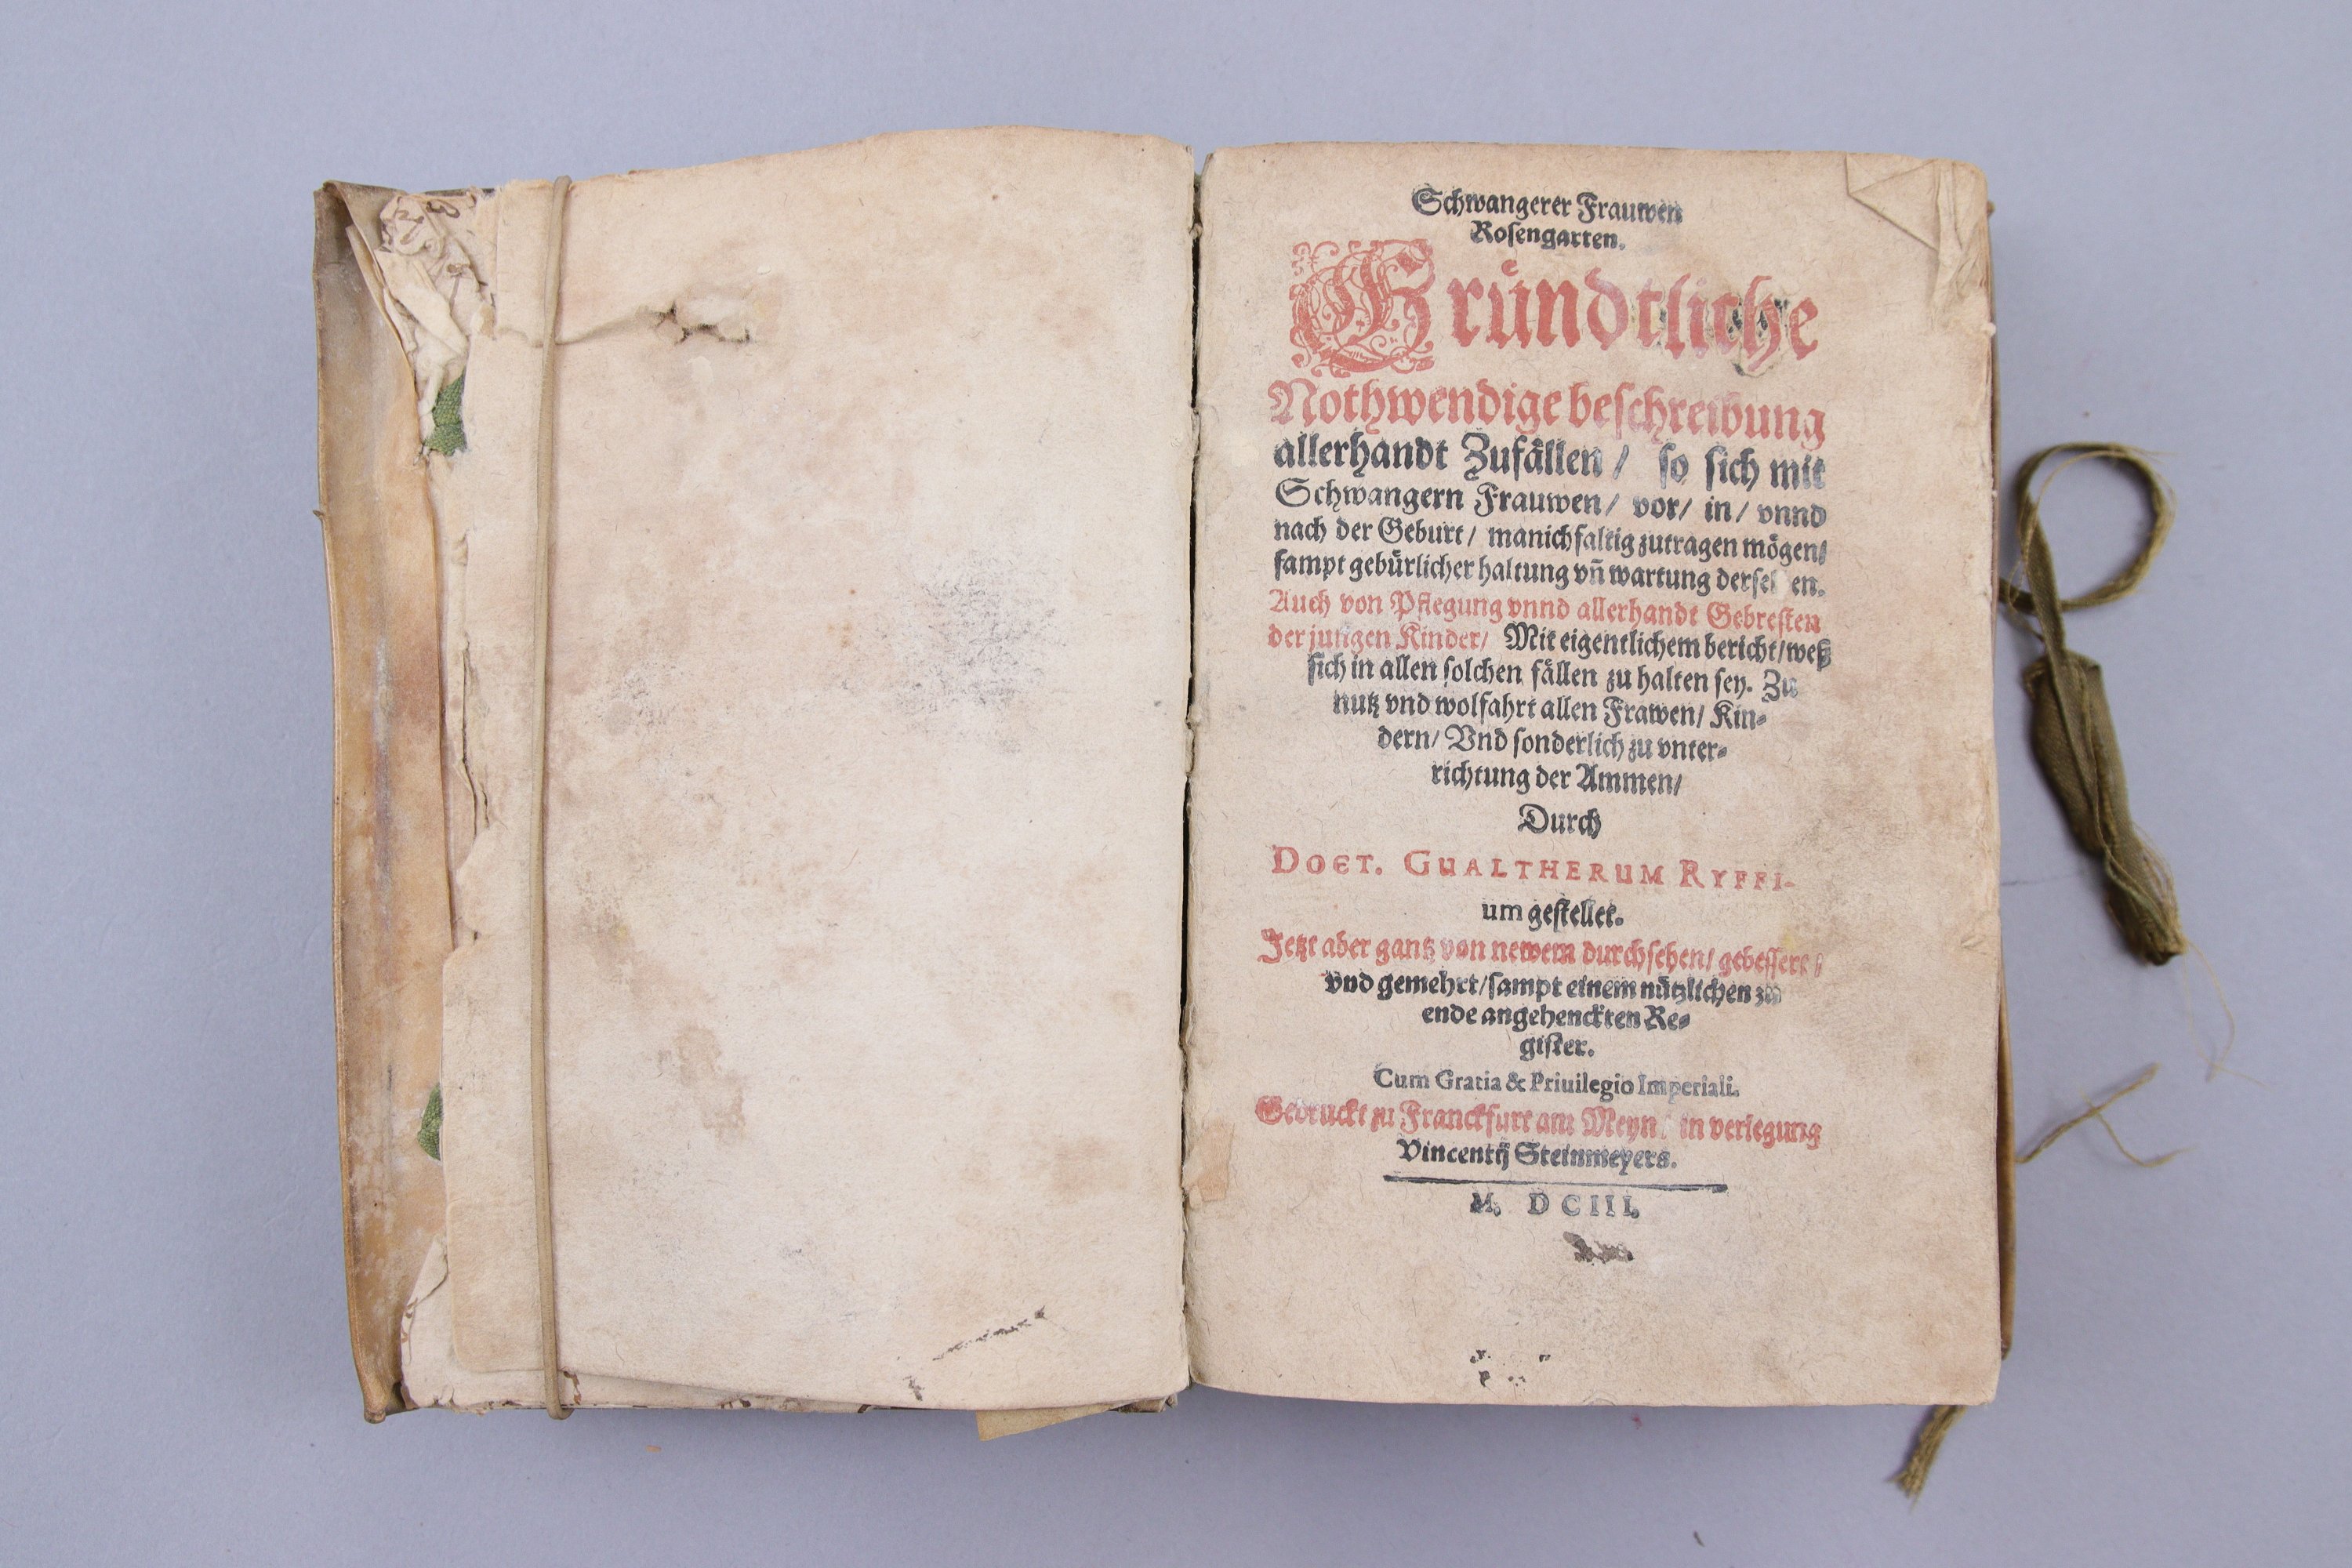 Schwangerer Frauwen
Rosengarten.
Gründtliche
Nothwendige beschreibung
allerhandt Zufällen / so sich mit
Schwangern Frauwen / vor / in / vnnd
nach der Geburt / manichfaltig zutragen mögen /
sampt gebürlicher haltung vñ wartung derselben.
Auch von Pflegung vnnd allerhandt Gebresten
der jungen Kinder / Mit eigentlichem bericht / weß
sich in allen solchen fällen zu halten sey. Zu
nutz vnd wolfahrt allen Frawen / Kin-
dern / Vnd sonderlich zu vnter-
richtung der Ammen /
Durch
DOCT. GUALTHERUM RYFFI-
um gestellet.
Jetzt aber gantz von newem durchsehen / gebessert /
vnd gemehrt / sampt einem nützlichen zu
ende angehenckten Re-
gister.
Cum Gratia & Priuilegio Imperiali.
Gedruckt zu Franckfurt am Meyn / in verlegung
Vincentij Steinmeyers.
M. DCIII.